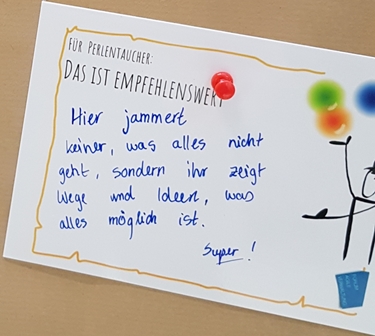 FÜR PERLENTAUCHER:
DAS IST EMPFEHLENSWERT
Hier jammert
keiner, was alles nicht
geht, sondern ihr zeigt
Wege und Ideen, was
alles möglich ist.
Super!